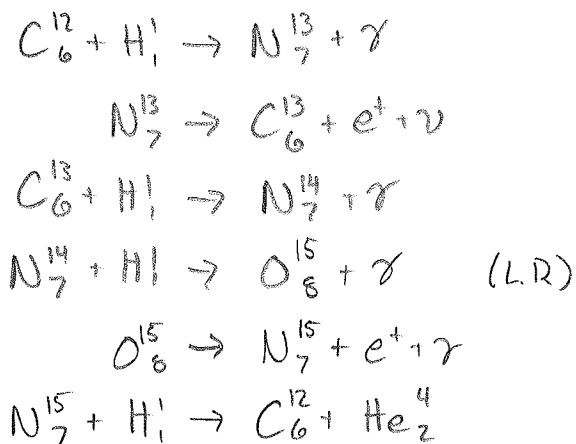 C₆¹² + H₁¹ → N₇¹³ + γ
N₇¹³ → C₆¹³ + e⁺ + ν
C₆¹³ + H₁¹ → N₇¹⁴ + γ
N₇¹⁴ + H₁¹ → O₈¹⁵ + γ (L.R)
O₈¹⁵ → N₇¹⁵ + e⁺ + γ
N₇¹⁵ + H₁¹ → C₆¹² + He₂⁴